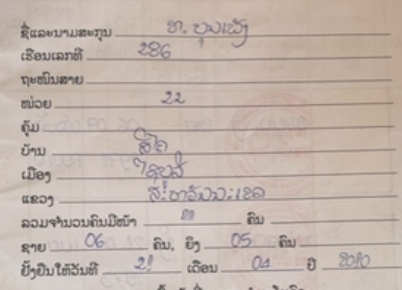 ຊື່ແລະນາມສະກຸນ ທ. ບຸນເພັງ
ເຮືອນເລກທີ 286
ຖະໜົນສາຍ
ໜ່ວຍ 22
ຄຸ້ມ
ບ້ານ
ເມືອງ
ແຂວງ ສະຫວັນນະເຂດ
ລວມຈຳນວນຄົນມີໜ້າ 11 ຄົນ
ຊາຍ 06 ຄົນ, ຍິງ 05 ຄົນ
ຢັ້ງຢືນໃຫ້ວັນທີ 21 ເດືອນ 04 ປີ 2010